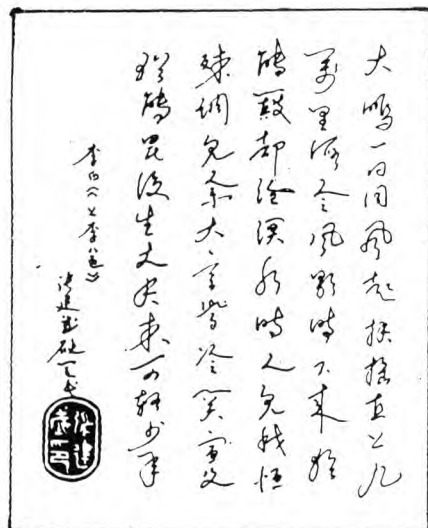 大鹏一日同风起扶摇直上九
万里假令风歇时下来犹
能簸却沧溟水时人见我恒
殊调见余大言皆冷笑宣父
犹能畏后生丈夫未可轻少年
李白《上李邕》
张建